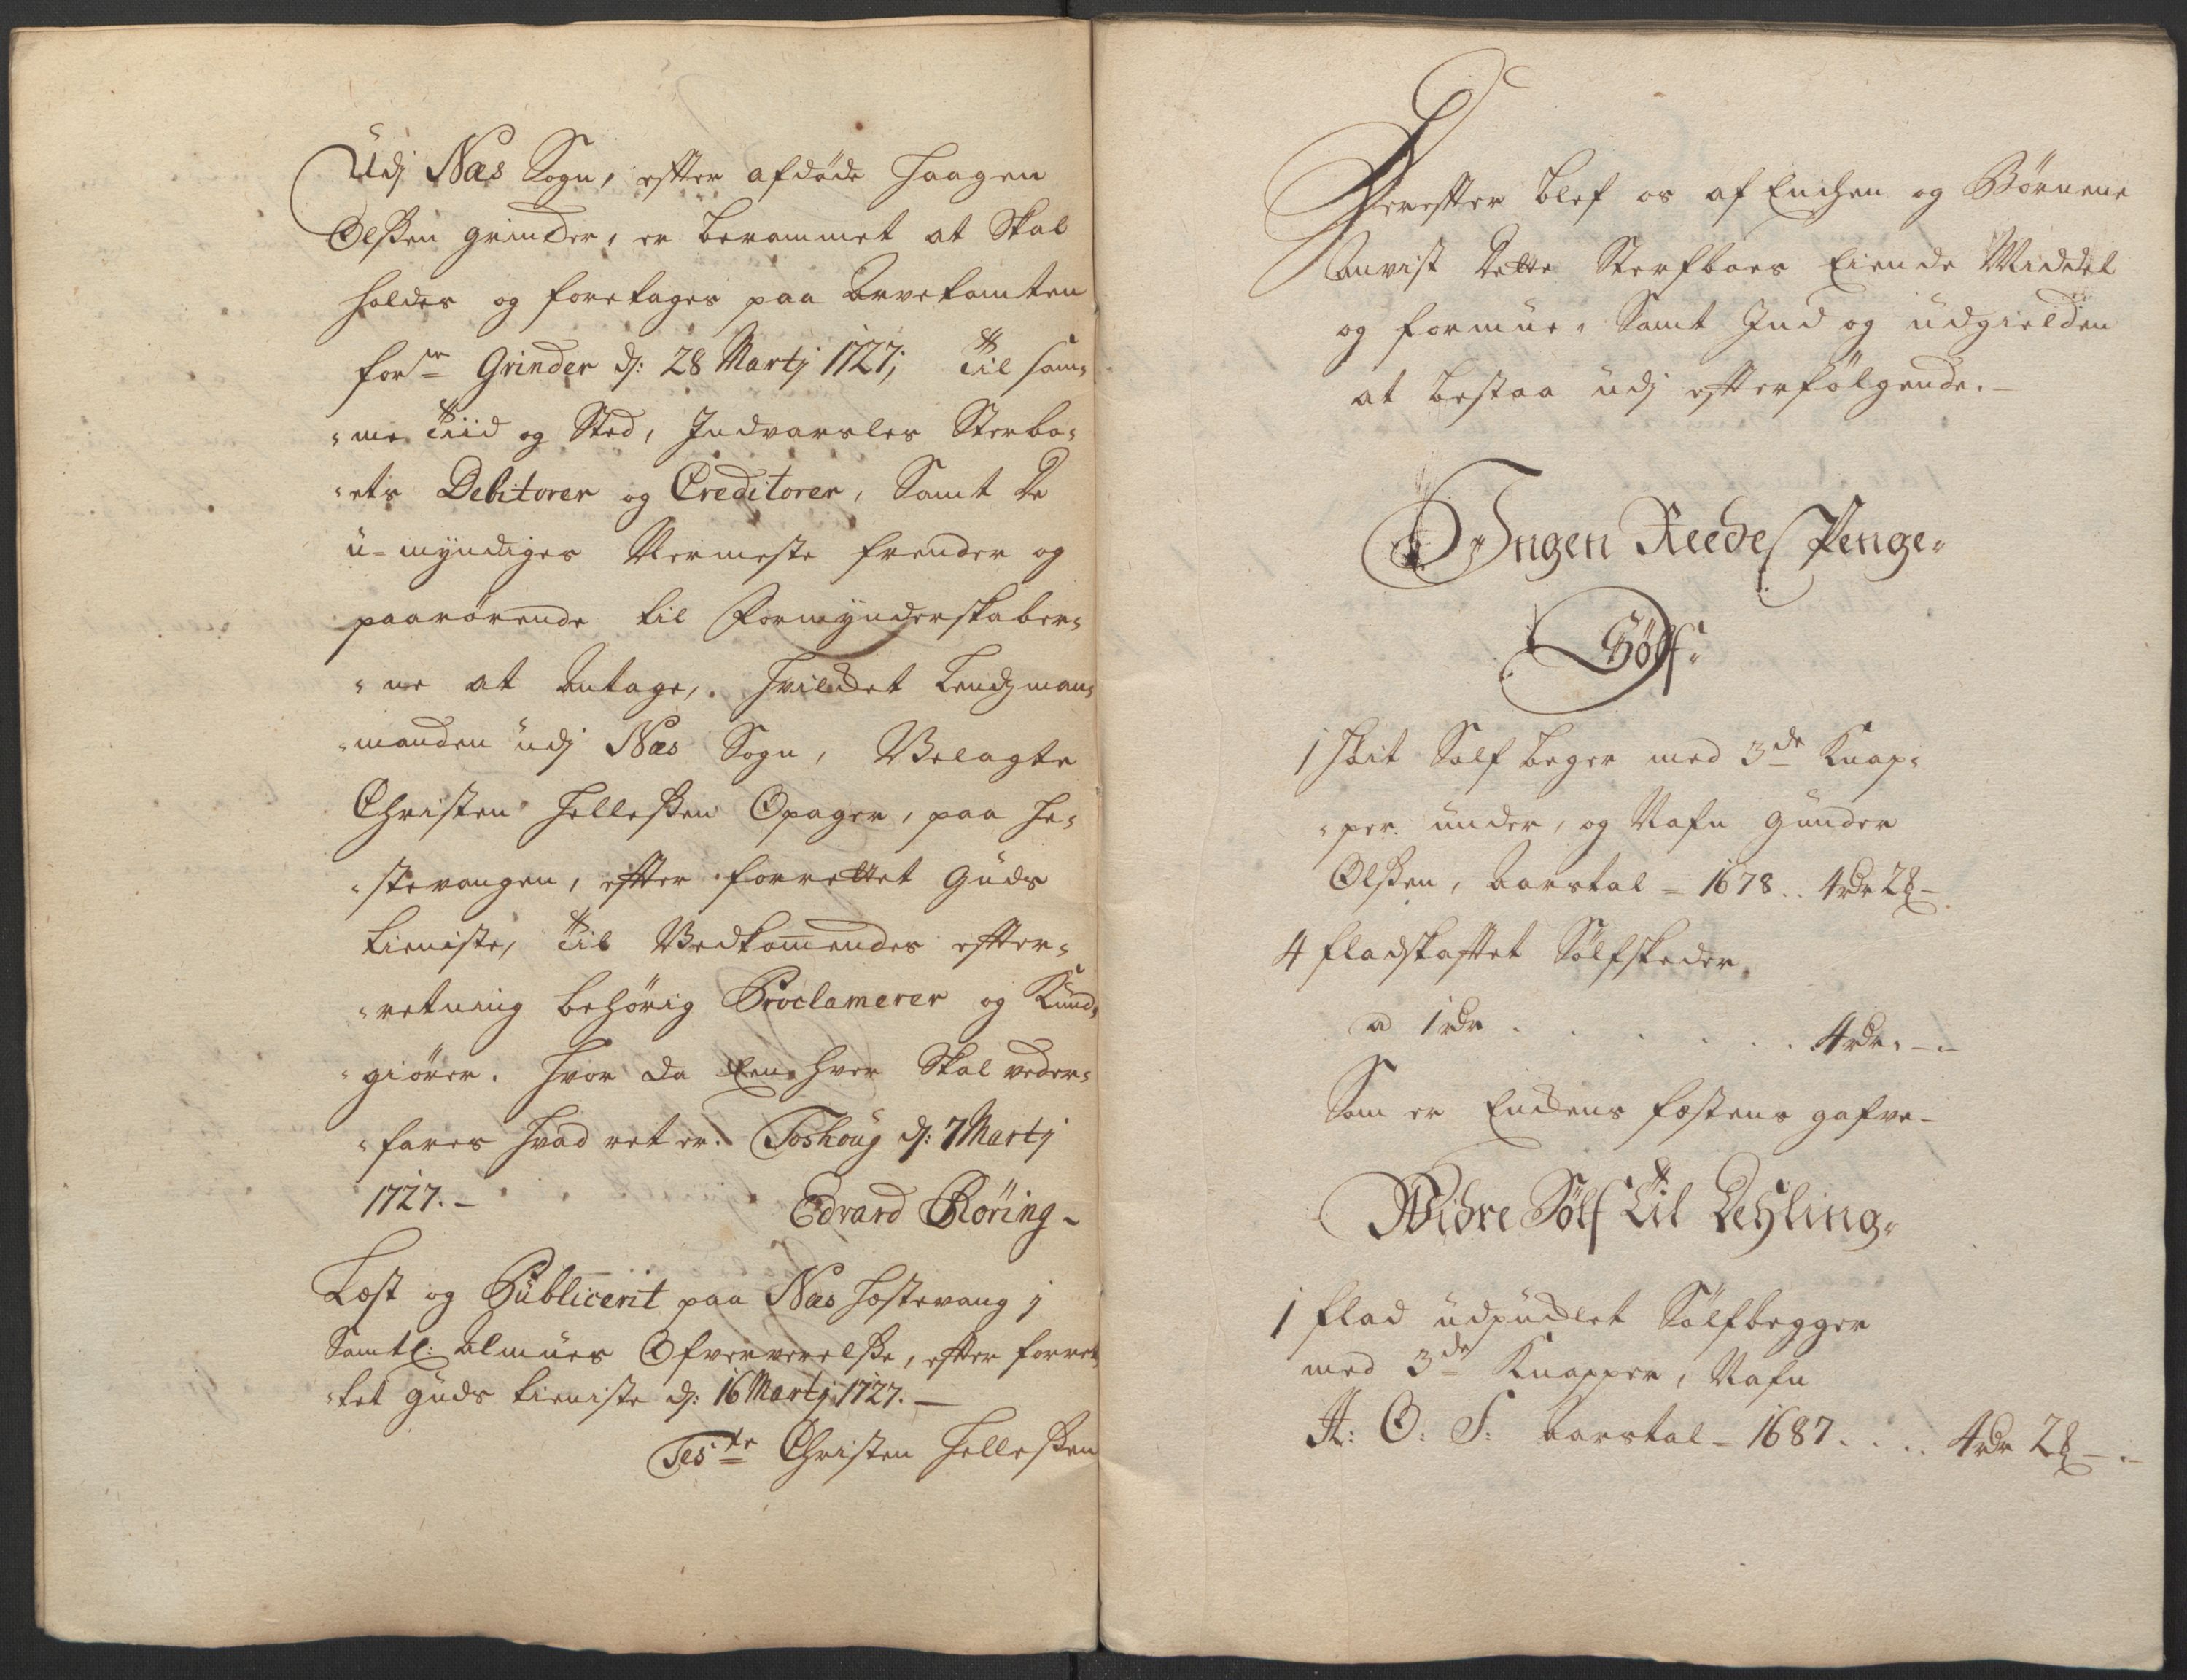 Udj Næs Sogn, efter afdøde Haagen
Olßen Grinder, er berammet at Skal
holdes og foretages paa Arvetomten
forne Grinder dj: 28 Martj 1727; Til sam-
me Tiid og Sted, Indvarsles Sterbo-
ets Debitorer og Creditorer, Samt De
u-myndiges Nermeste frender og
paarørende til Formynderskaber-
ne at Antage, hvilcket Lendzman-
manden udj Næs Sogn, Velagte
Christen Helleßen Opager, paa He-
stevangen, efter forrettet Guds
tieniste, Til Vedkommendes efter-
retning behørig Proclamerer og Kund-
giører. Hvor da Een hver Skal veder-
fares hvad ret er. Toshoug dj: 7 Martj
1727.-
Edvard Röring
Læst og Publicerit paa Næs Hæstevang j
Samtl: Almues Ofververelße, efter forret-
tet Guds tieniste dj: 16 Martj 1727.-
Teste Christen Helleßen
Derefter blef os af Enchen og Børnene
Anvist Dette Sterfboes Eiende Middel
og formue, Samt Ind og udgielden
at bestaa udj efterfølgende.-
Ingen Reede Penge
Sølf
1 Hvit Sølf beger med 3de Knap-
per under, og Nafn Gunder
Olßen, Aarstal - 1678 .. 4rdr 2 ß -
4 fladskaftet Sølfskeder
a 1 rdr . . . . . . 4rdr. - . -
Som er Enckens fæstens gafve -
Widre Sølf Til Dehling
1 flad udpucklet Sølfbegger
med 3de Knapper, Nafn
A: O: S: Aarstal - 1687 . . . . 4rdr 2 ß - . -